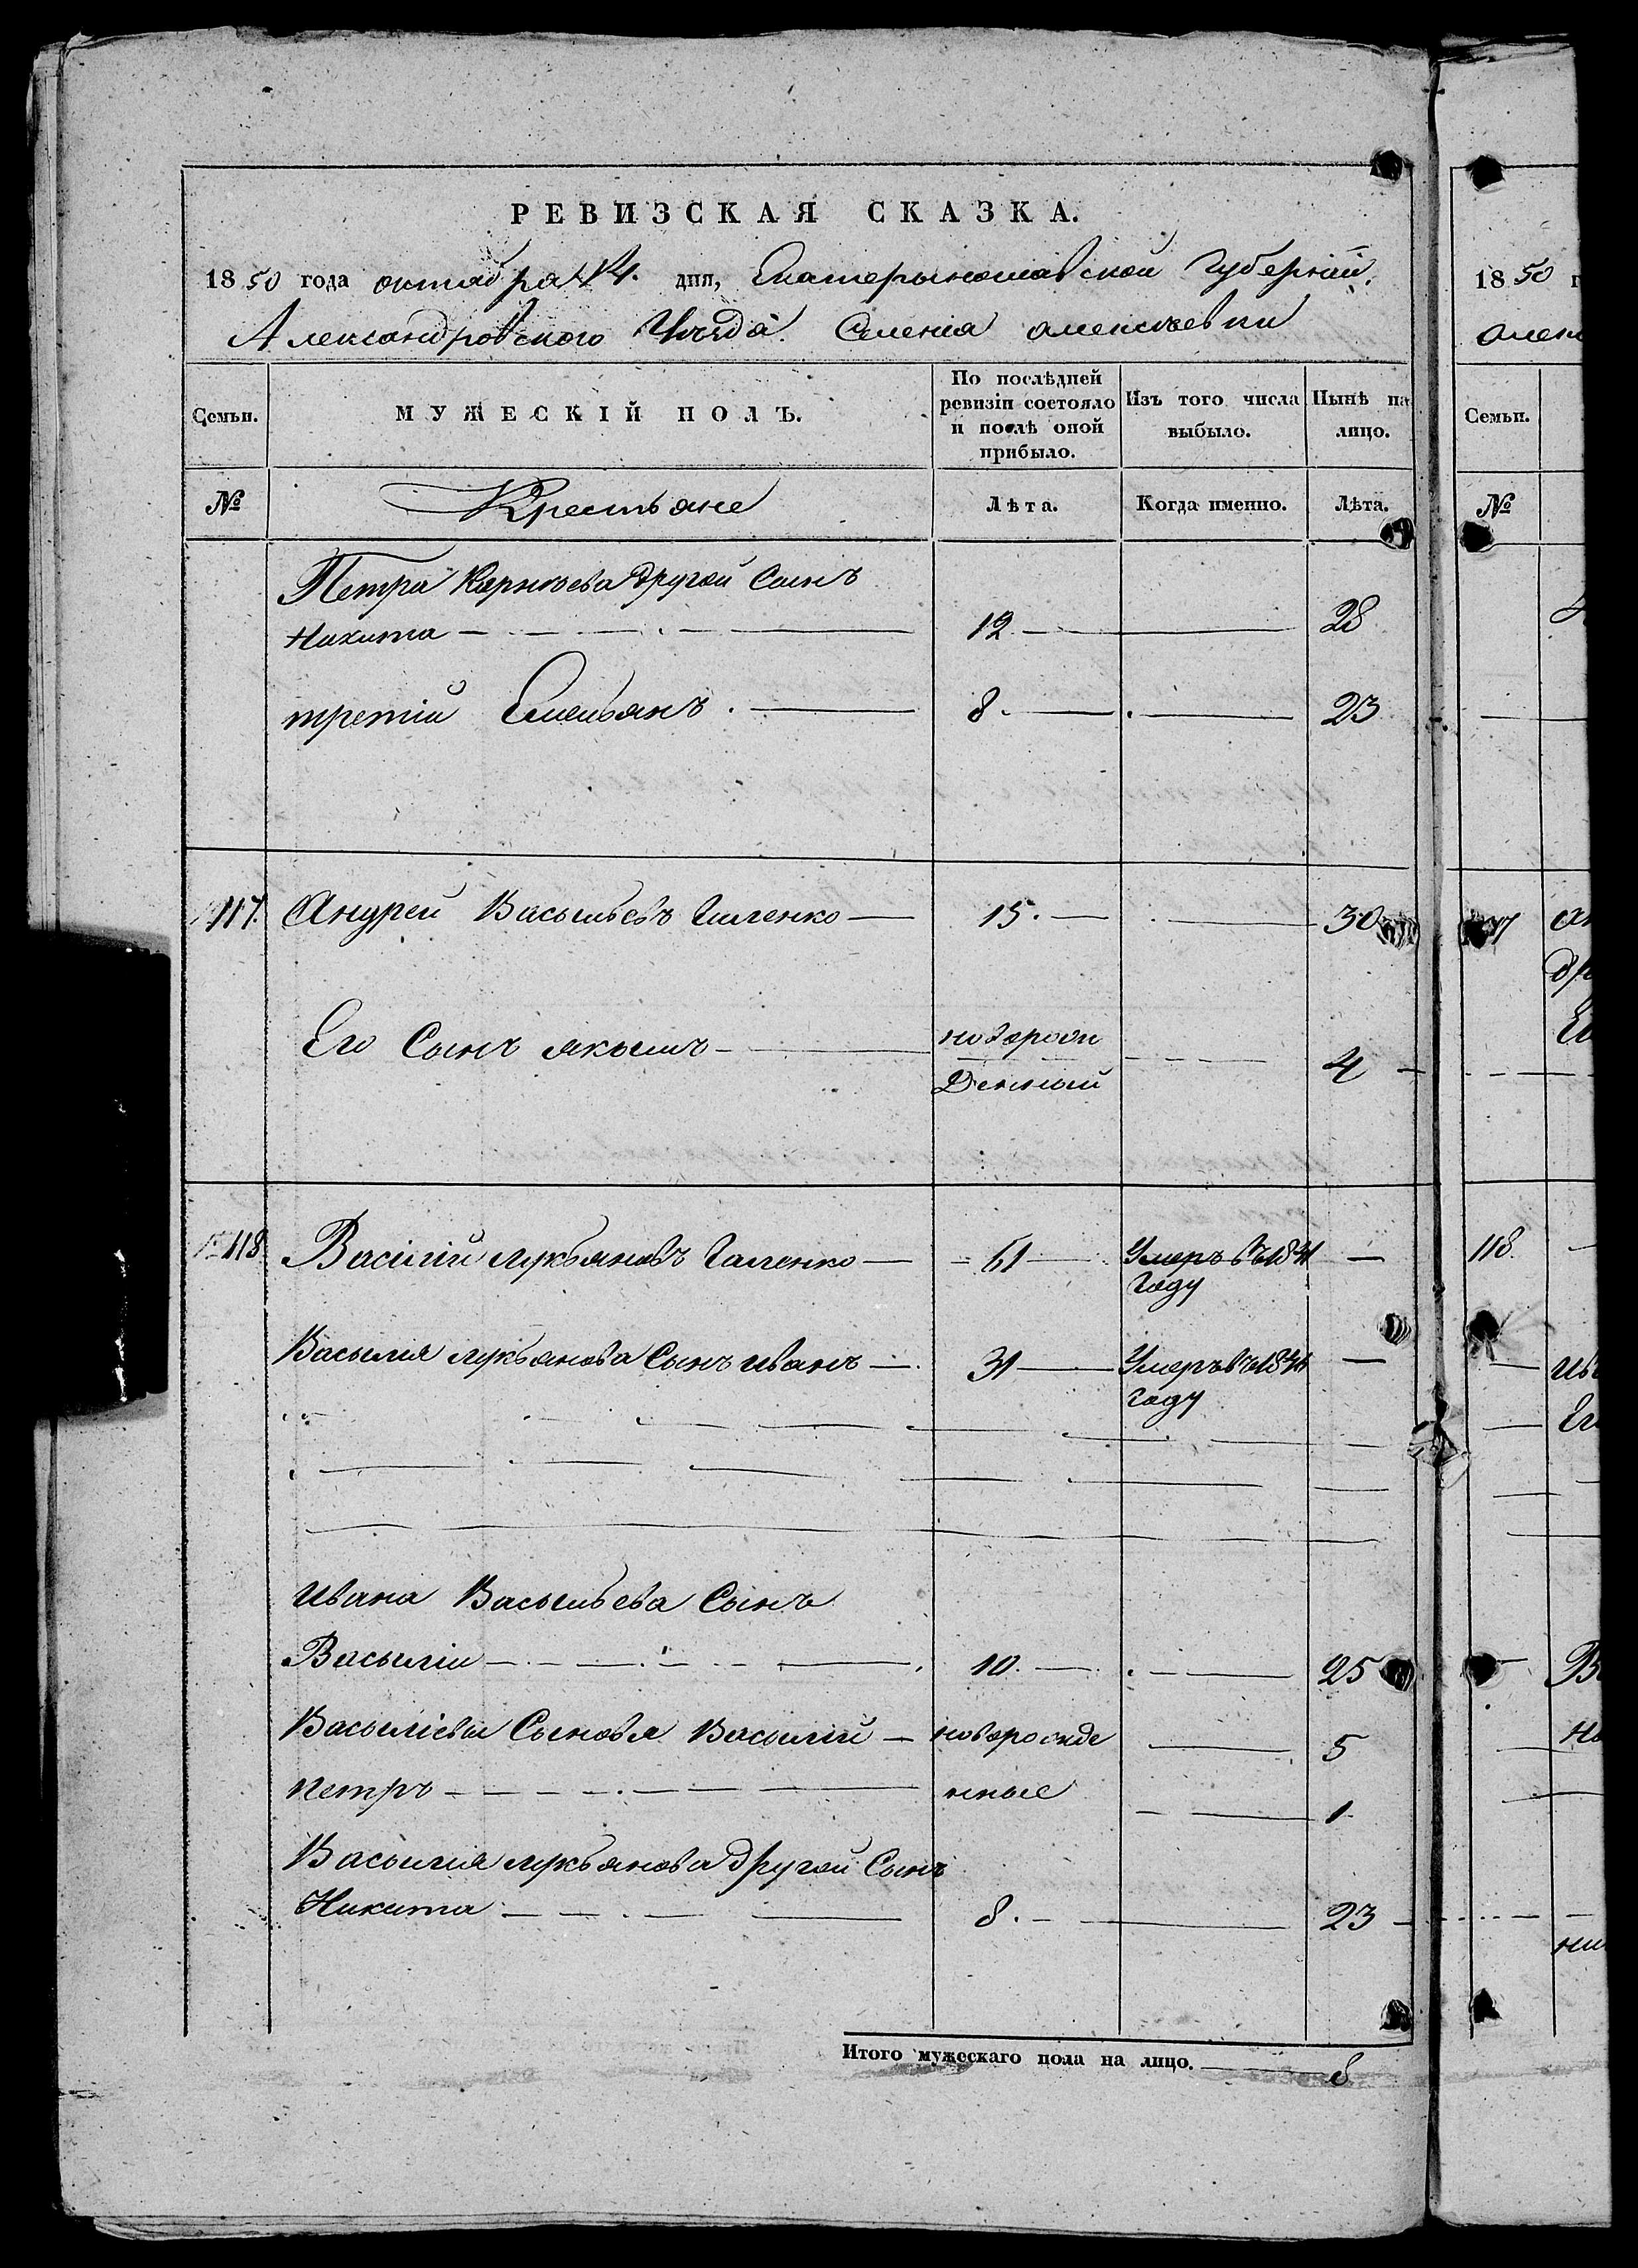 РЕВИЗСКАЯ СКАЗКА.
1850 года октября 14. дня, Екатерынославской Губернии.
Александровского Уѣзда. Селенія алексѣевки
Семьи.
МУЖЕСКІЙ ПОЛЪ.
По послѣдней ревизіи состояло и послѣ оной прибыло.
Изъ того числа выбыло.
Нынѣ на лицо.
№
Крестьяне
Лѣта.
Когда именно.
Лѣта.
Петра Карнѣева другой Сынъ
Никита 12 28
третій Емельянъ 8 23
117. Андрей Васыльевъ Галенко 15. 30
Его Сынъ якымъ новорож
денный 4
118 Васілій лукьяновъ Галенко 61 Умеръ въ 1841
году
Васылия лукьянова Сынъ иванъ 31 Умеръ въ 1846
году
ивана Васыльева Сынъ
Васылій 10. 25
Васыліевы Сыновья Васылій новорожде 5
петръ нные 1
Васылия лукьянова другой Сынъ
Никита 8. 23
Итого мужескаго пола на лицо. 8
1850 г
алек
Семьи.
№
118.